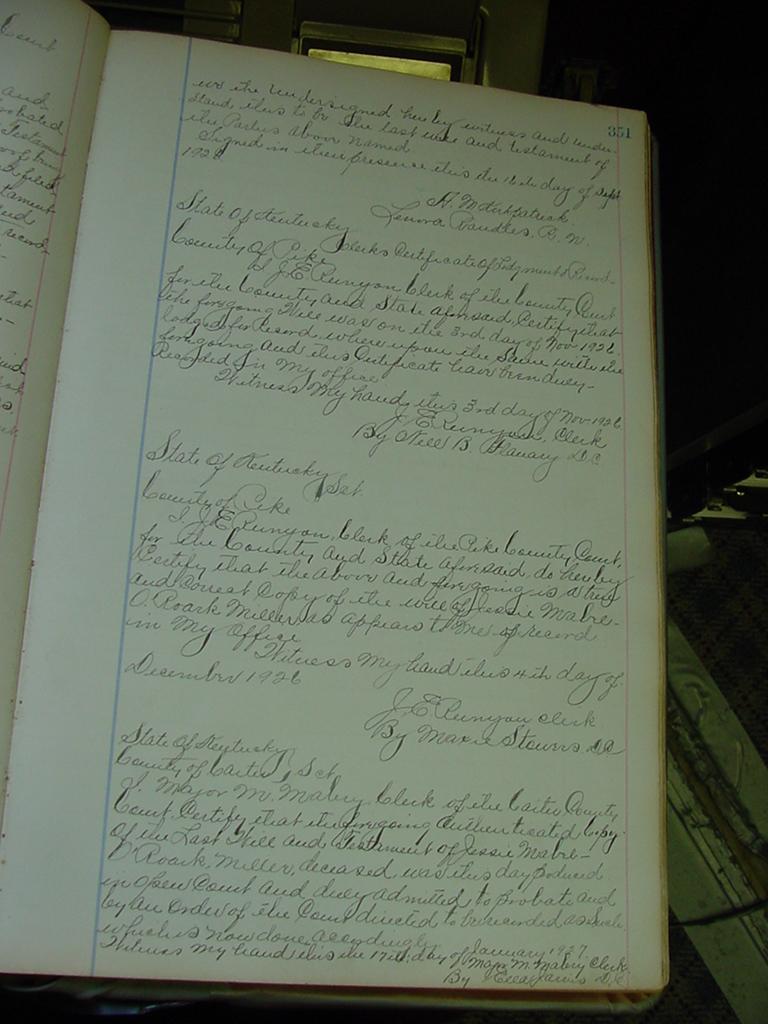 351
we the undersigned hereby witness and under-
stand this to be the last will and testament of
the Parties above named
Signed in their presence this the 16th day of Sept
1926
H. M. Kirkpatrick
Lenora Randles, R. N.
State Of Kentucky
Clerks Certificate Of Lodgment & Record-
County Of Pike
I, J. E. Runyon Clerk of the County Court
for the County and State aforesaid, Certify that
the foregoing Will was on the 3rd day of Nov 1926.
lodged for Record, where upon the same with the
foregoing and this Certificate have been duly-
Recorded in my office
Witness My hand, this 3rd day of Nov-1926
J. E. Runyon, Clerk
By Will B. Flanary D.C
State Of Kentucky
Sct.
County of Pike
I J. E. Runyon, Clerk of the Pike County Court,
for the County and State aforesaid, do hereby
Certify that the above and foregoing is a true
and Correct Copy of the will of Jessie Mabre-
O. Roark Miller, as appears to me of record
in My Office
Witness My hand this 4th day of
December 1926
J. E. Runyon clerk
By Maxie Stowers D.C
State Of Kentucky
County of Carter, Sct
I. Major M. Mabry Clerk of the Carter County
Court, Certify that the foregoing authenticated Copy
Of the Last Will and Testament of Jessie Mabre-
O'Roark Miller, deceased was this day produced
in Open Court and duly admitted to probate and
by an Order of the Court directed to be recorded as such
which is now done accordingly.
Witness My hand this the 17th day of January 1927
Major M. Mabry Clerk
By D.C.
Court
and
probated
Testamen
tament
and
record-
that